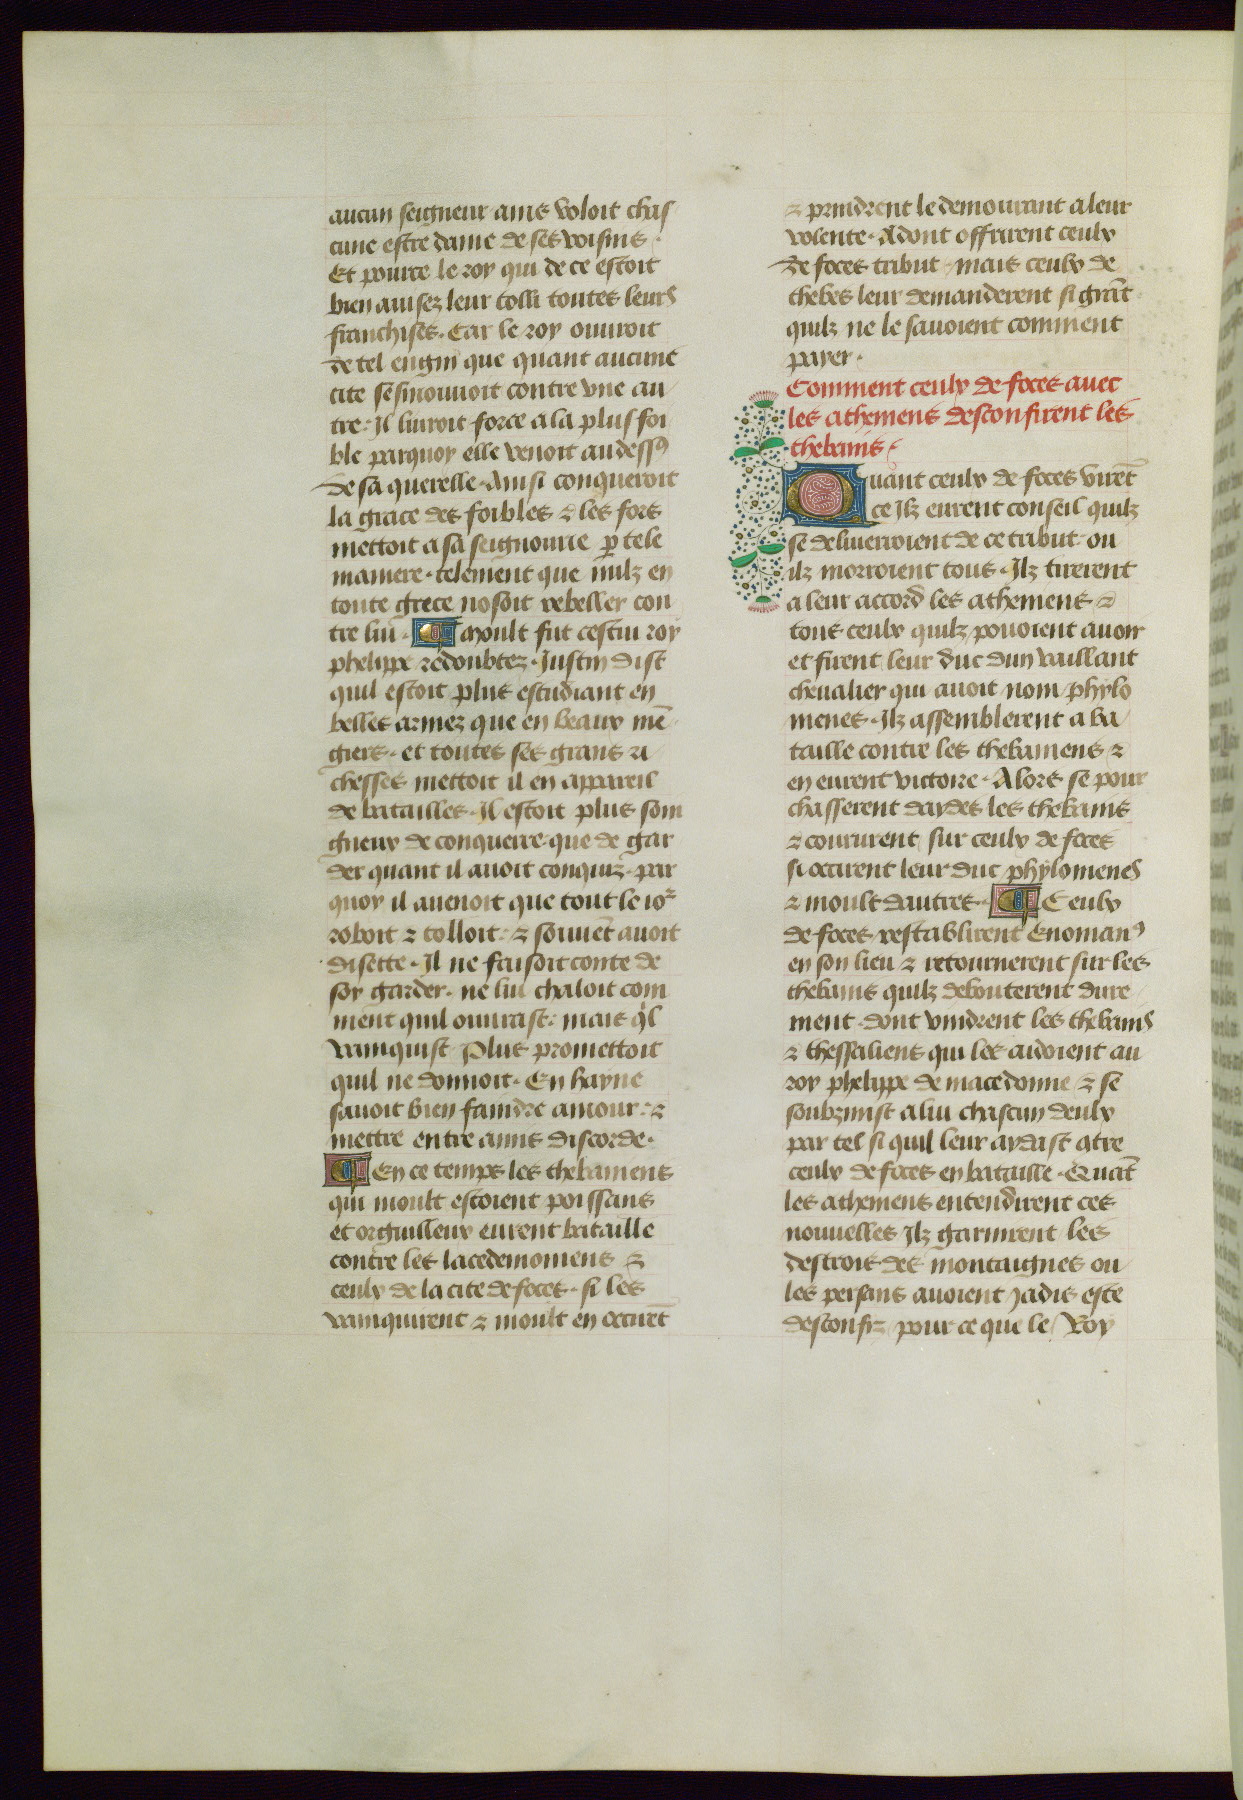 aucun seigneur ains voloit chas
cune estre dame de ses voisins.
Et pource le roy qui de ce estoit
bien auisez leur tolli toutes leurs
franchises. Car le roy ouuroit
de tel engin que quant aucune
cite sesmouuoit contre vne au
tre. Il liuroit force a la plus foi
ble parquoy elle venoit au dessꝰ
de sa querelle. Ainsi conqueroit
la grace des foibles ⁊ les fors
mettoit a sa seignourie ꝑ tele
maniere. telement que nulz en
toute grece nosoit rebeller con
tre lui. ¶ Moult fut cestui roy
phelippe redoubtez. Justin dist
quil estoit plus estudiant en
belles armez que en beaux mē
giers. et toutes ses grans ri
chesses mettoit il en appareil
de batailles. Il estoit plus soin
gneux de conquerre que de gar
der quant il auoit conquiz. par
quoy il auenoit que tout le ioʳ
roboit ⁊ tolloit. ⁊ souuēt auoit
disette. Il ne faisoit conte de
soy garder. ne lui chaloit com
ment quil ouurast. mais q̄l
vainquist Plus promettoit
quil ne donnoit. En hayne
sauoit bien faindre amour. ⁊
mettre entre amis discorde.
¶ En ce temps les thebaniens
qui moult estoient poissans
et orguilleux eurent bataille
contre les lacedemoniens ⁊
ceulx de la cite de foces. si les
vainquirent ⁊ moult en occirēt
⁊ prindrent le demourant a leur
volente. Adont offrirent ceulx
de foces tribut. mais ceulx de
thebes leur demanderent si grāt
quilz ne le sauoient comment
paier.
Comment ceulx de foces auec
les atheniens desconfirent les
thebains.
Quant ceulx de foces virēt
ce Ilz eurent conseil quilz
se deliuerroient de ce tribut ou
ilz morroient tous. Ilz tirerent
a leur accord les atheniens ⁊
tous ceulx quilz pouoient auoir
et firent leur duc dun vaillant
cheualier qui auoit nom phylo
menes. Ilz assemblerent a ba
taille contre les thebaniens ⁊
en eurent victoire. Alors se pour
chasserent daydes les thebains
⁊ coururent sur ceulx de foces
si occirent leur duc phylomenes
⁊ moult dautres. ¶ Ceulx
de foces restablirent Enomanꝰ
en son lieu ⁊ retournerent sur les
thebains quilz debouterent dure
ment. dont vindrent les thebains
⁊ thessaliens qui les aidoient au
roy phelippe de macedonne ⁊ se
soubzmist a lui chascun deulx
par tel si quil leur aydast ɔtre
ceulx de foces en bataille. Quāt
les atheniens entendirent ces
nouuelles Ilz garnirent les
destrois des montaignes ou
les persans auoient jadis este
desconfiz pour ce que le Roy